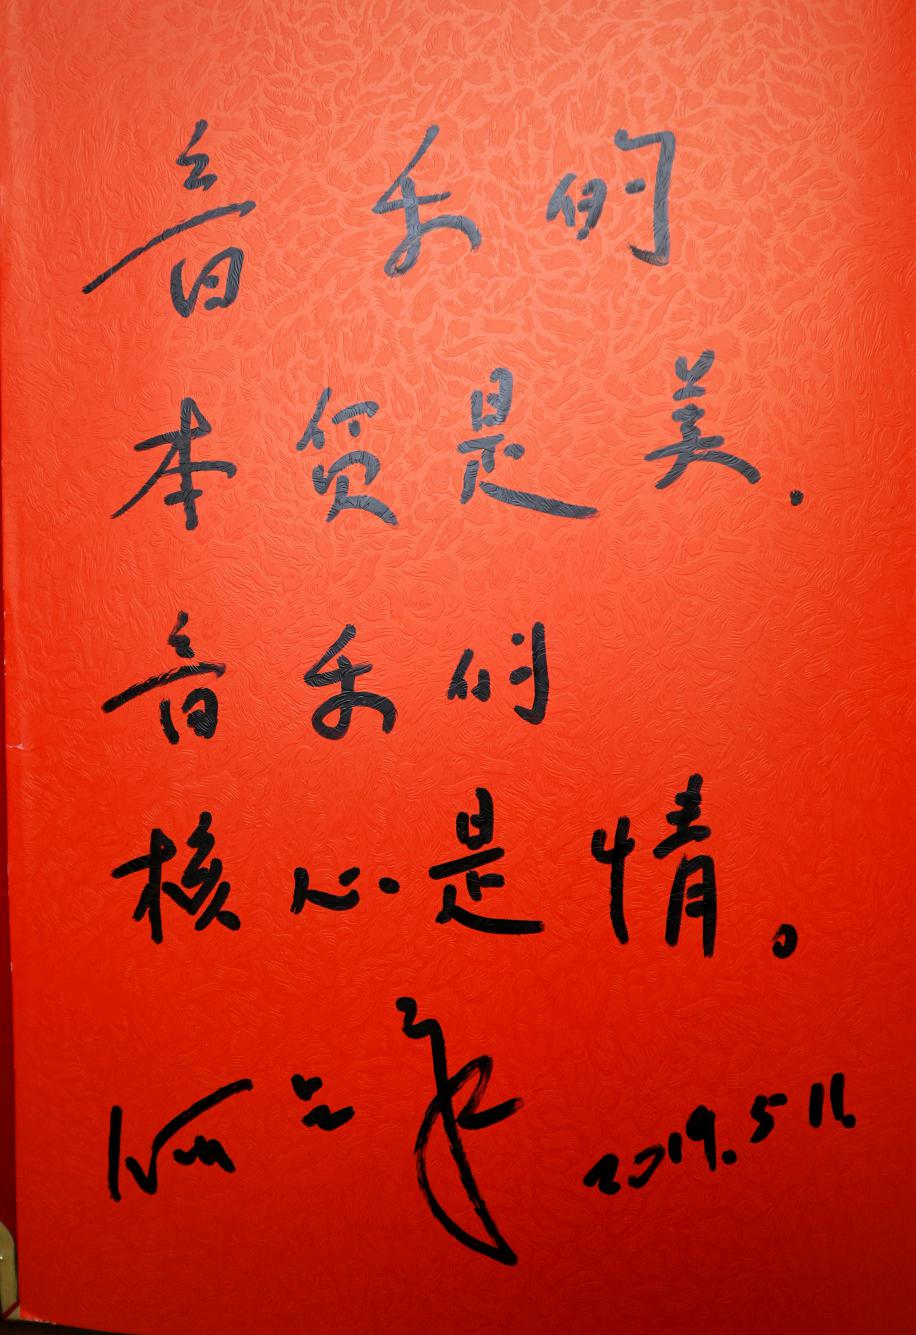 音乐的
本质是美.
音乐的
核心是情。
2019.5 11.